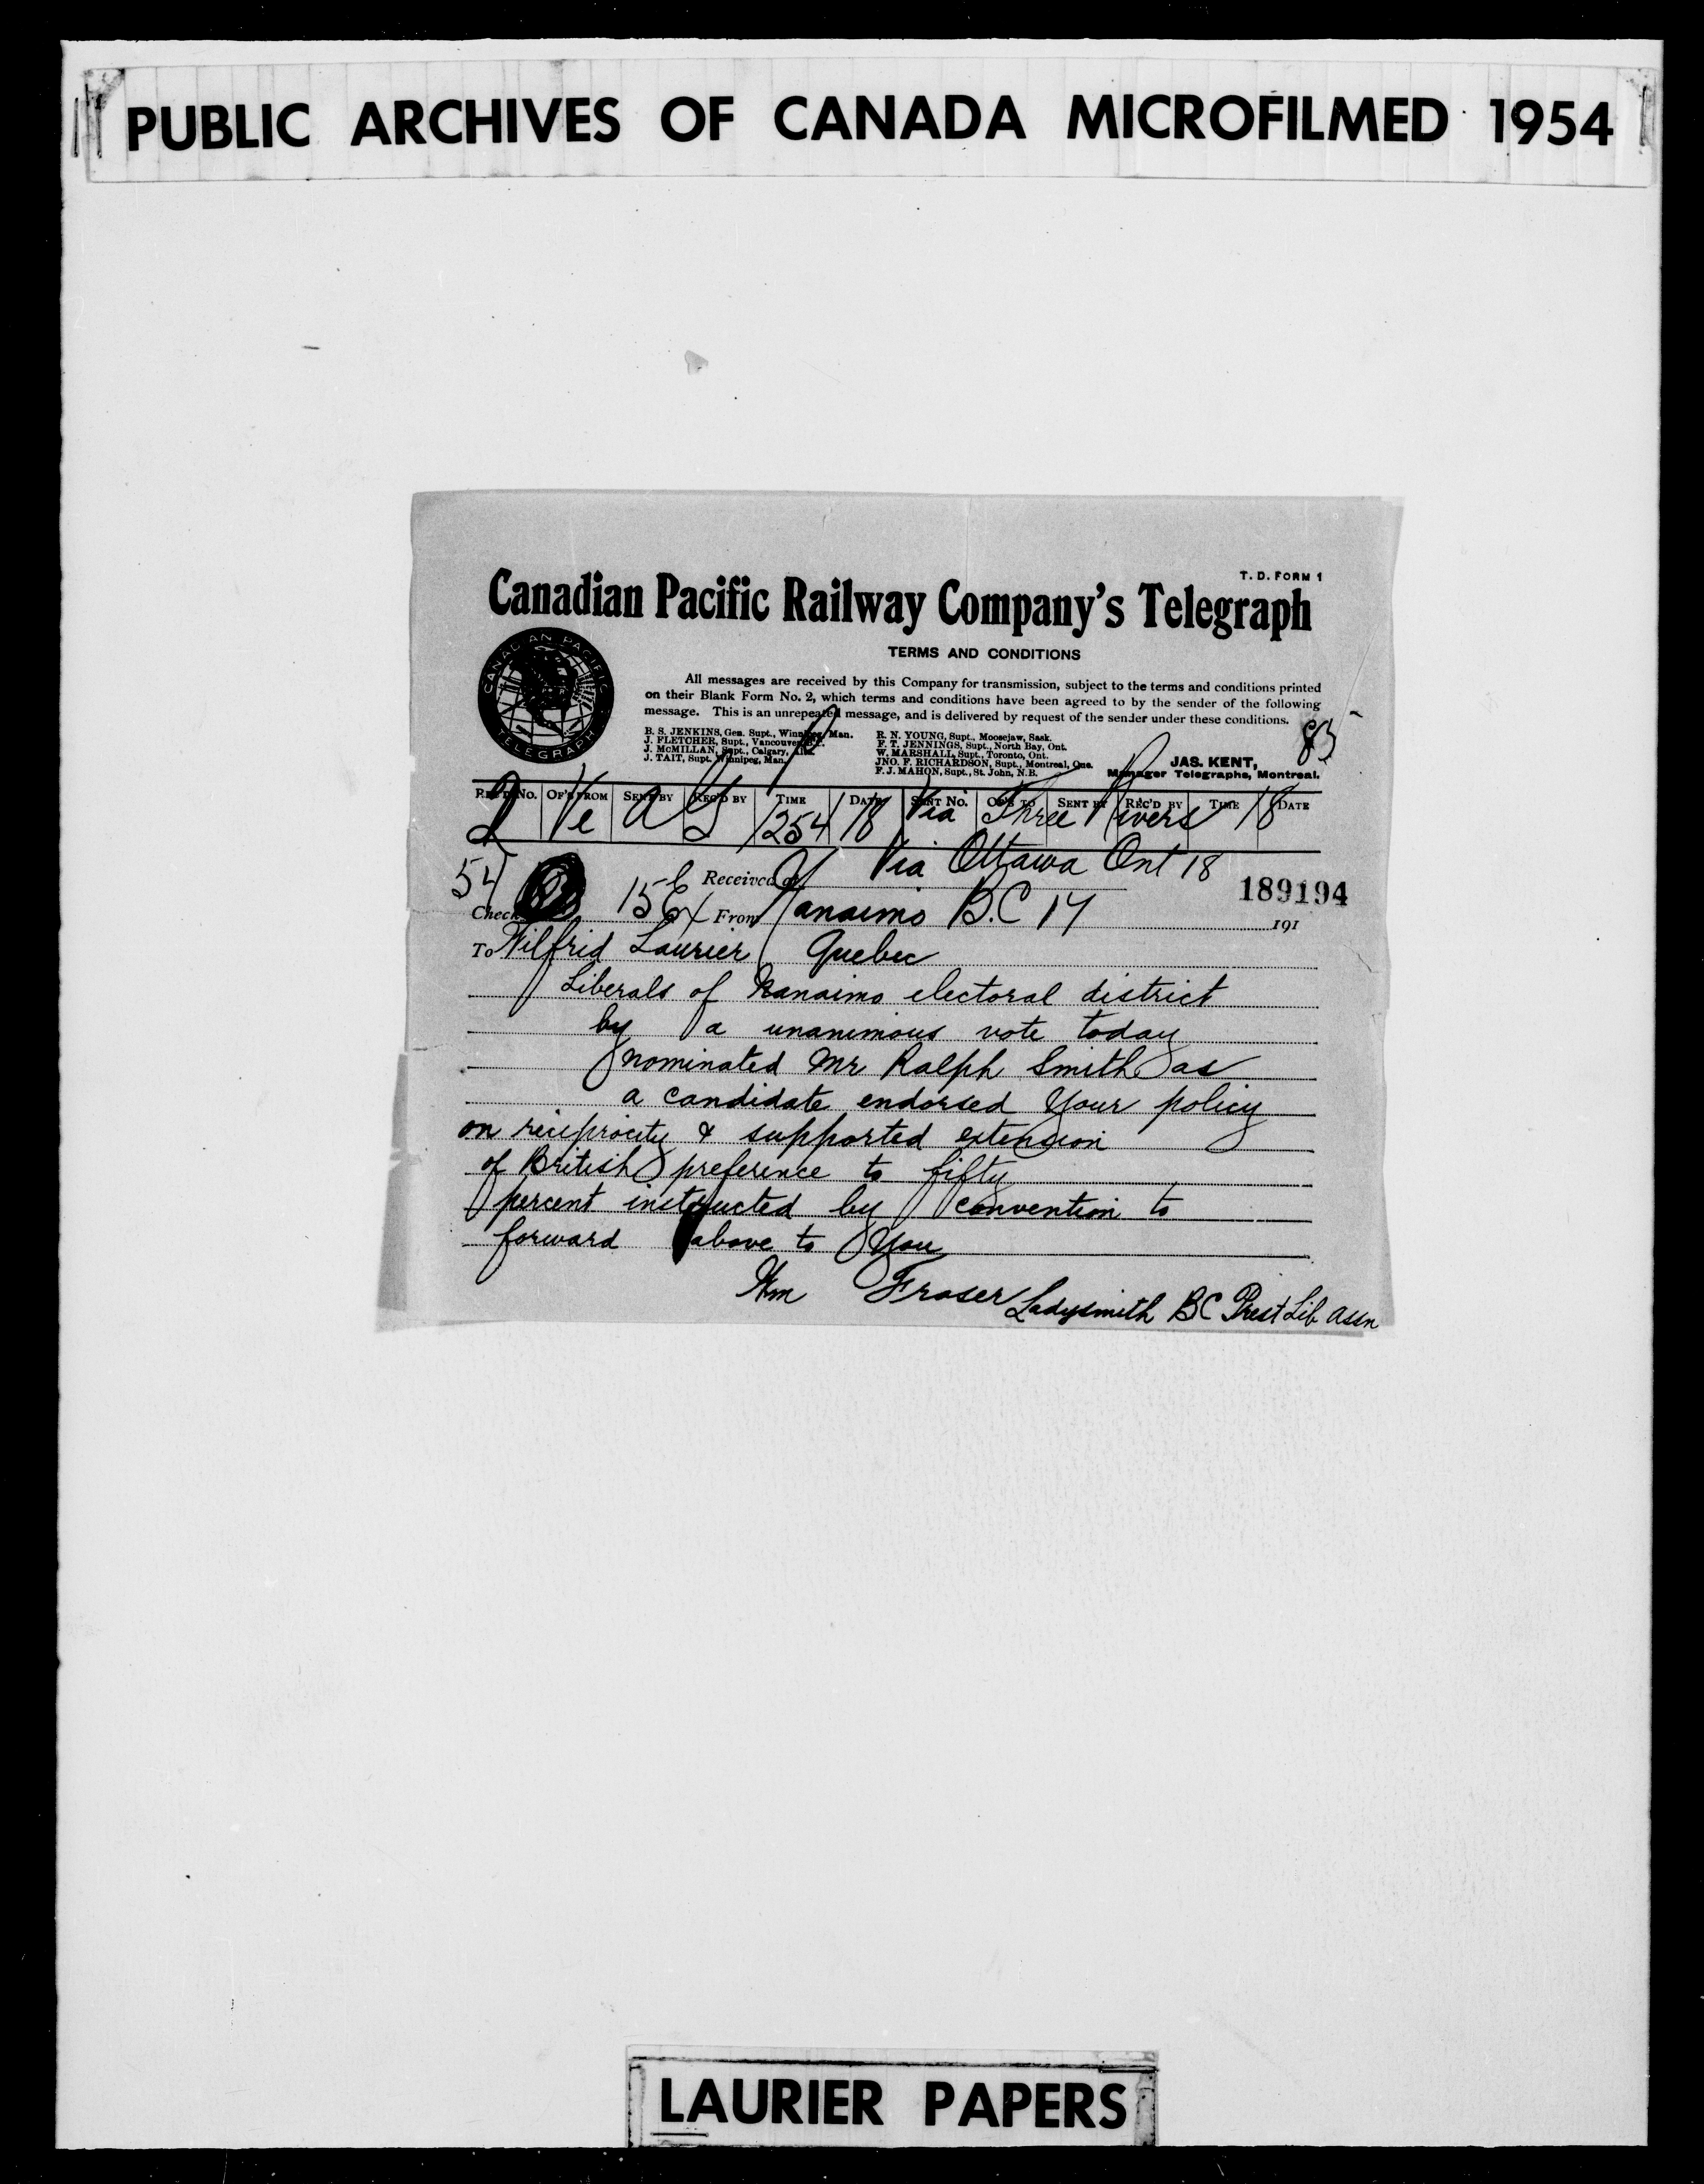 PUBLIC ARCHIVES OF CANADA MICROFILMED 1954
T. D. FORM 1
Canadian Pacific Railway Company's Telegraph
CANADIAN PACIFIC TELEGRAPH
TERMS AND CONDITIONS
All messages are received by this Company for transmission, subject to the terms and conditions printed
on their Blank Form No. 2, which terms and conditions have been agreed to by the sender of the following
message. This is an unrepeated message, and is delivered by request of the sender under these conditions.
B. S. JENKINS, Gen. Supt., Winnipeg, Man.
J. FLETCHER, Supt., Vancouver, B.C.
J. McMILLAN, Supt., Calgary, Alta.
J. TAIT, Supt. Winnipeg, Man.
R. N. YOUNG, Supt., Moosejaw, Sask.
F. T. JENNINGS, Supt., North Bay, Ont.
W. MARSHALL, Supt., Toronto, Ont.
JNO. F. RICHARDSON, Supt., Montreal, Que.
F. J. MAHON, Supt., St. John, N.B.
85
JAS. KENT,
Manager Telegraphs, Montreal.
REC'D No. OF'S FROM SENT BY REC'D BY TIME DATE SENT No. OF'S TO SENT BY REC'D BY TIME DATE
Ve a 1254 18 Via Three Rivers 18
54 Received at Via Ottawa Ont 18
189194
Check 15 From Nanaimo B.C 17 191
To Wilfrid Laurier Quebec
Liberals of Nanaimo electoral district
by a unanimous vote today
nominated Mr Ralph Smith as
a candidate endorsed your policy
on reciprocity & supported extension
of British preference to fifty
percent instructed by convention to
forward above to you
Wm Fraser Ladysmith BC Prest Lib Assn
LAURIER PAPERS